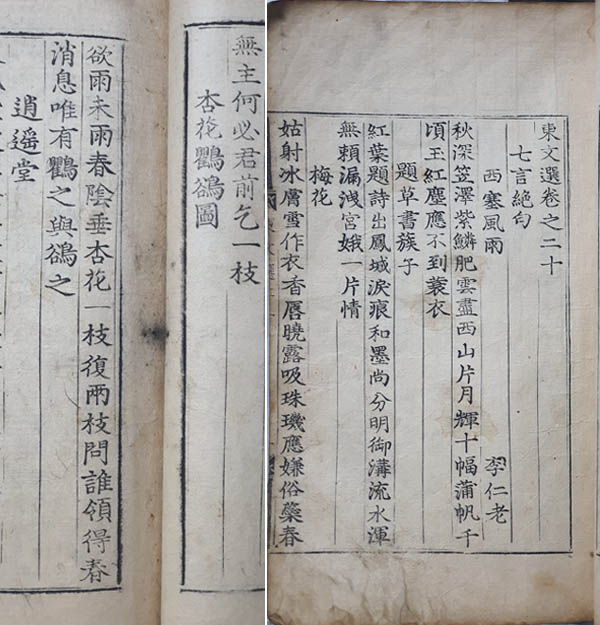 東文選卷之二十
七言絶句
西塞風雨 李仁老
秋深笠澤紫鱗肥雲盡西山片月輝十幅蒲帆千
頃玉紅塵應不到蓑衣
題草書簇子
紅葉題詩出鳳城淚痕和墨尚分明御溝流水渾
無頼漏洩宮娥一片情
梅花
姑射冰膚雪作衣香唇曉露吸珠璣應嫌俗蘂春
無主何必君前乞一枝
杏花鸜鵒圖
欲雨未雨春陰垂杏花一枝復兩枝問誰領得春
消息唯有鸜之與鵒之
逍遥堂